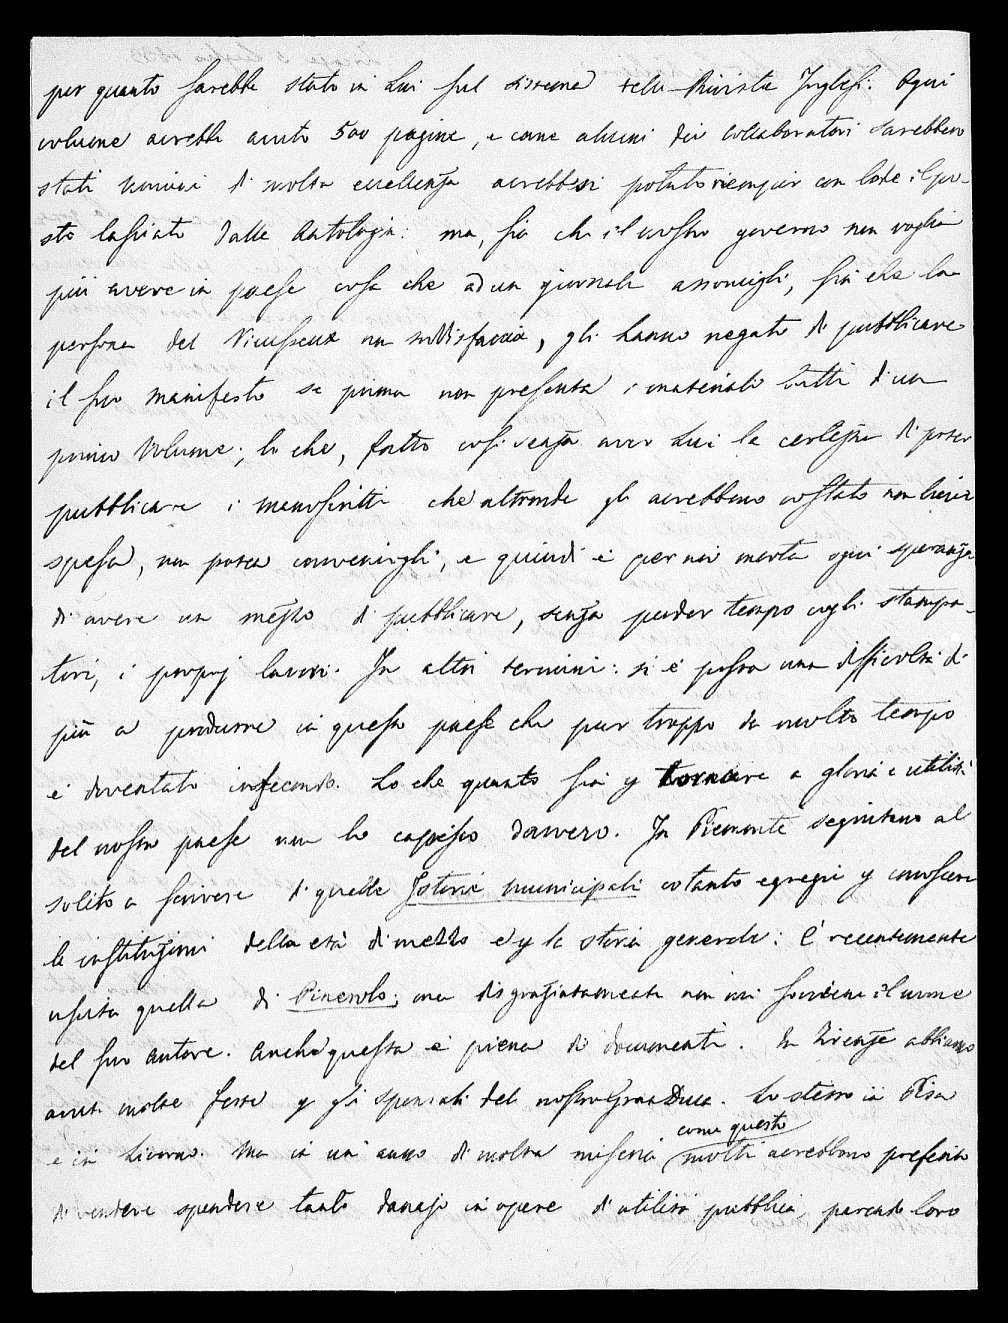 per quanto sarebbe stato in Lui sul sistema delle Riviste Inglesi. Ogni
volume avrebbe avuto 500 pagine, e come alcuni dei collaboratori sarebbero
stati uomini di molta eccellenza avrebbesi potuto riempir con lode il po-
sto lasciato dalla Antologia: ma, sia che il nostro governo non voglia
più avere in paese cosa che ad un giornale assomigli, sia che la
persona del Vieusseux non soddisfaccia, gli hanno negato di pubblicare
il suo manifesto se prima non presenta i materiali tutti d'un
primo volume; lo che, fatto così senza aver Lui la certezza di poter
pubblicare i manoscritti che altronde gli avrebbero costato non lieve
spesa, non potea convenirgli, e quindi è per noi morta ogni speranza
di avere un mezzo di pubblicare, senza perder tempo cogli stampa-
tori, i proprj lavori. In altri termini: si è posta una difficoltà di
più a produrre in questo paese che pur troppo da molto tempo
è diventato infecondo. Lo che quanto sia p tornare a gloria e utilità
del nostro paese non lo capisco davvero. In Piemonte seguitano al
solito a scrivere di quelle Istorie municipali cotanto egregie p conoscere
le instituzioni della età di mezzo e p la storia generale: È recentemente
uscita quella di Pinerolo; ma disgraziatamente non mi sovviene il nome
del suo autore. Anche questa è piena di documenti. In Firenze abbiamo
avuti molte feste p gli sponsali del nostro Gran Duca. Lo stesso in Pisa
e in Livorno. Ma in un anno di molta miseria come questo molti avrebbono preferito
di vedere spendere tanto danajo in opere di utilità pubblica, parendo loro